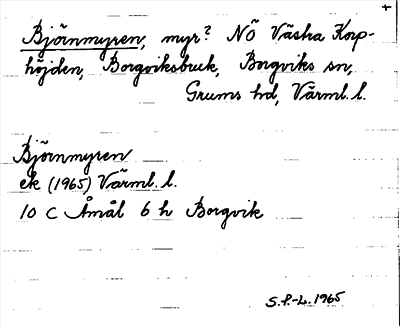 +
Björnmyren, myr? NÖ Västra Korp-
höjden, Borgviksbruk, Borgviks sn,
Grums hd, Värml. l.
Björnmyren
ek (1965) Värml. l.
10 C Åmål 6 h Borgvik
S.P.-L. 1965